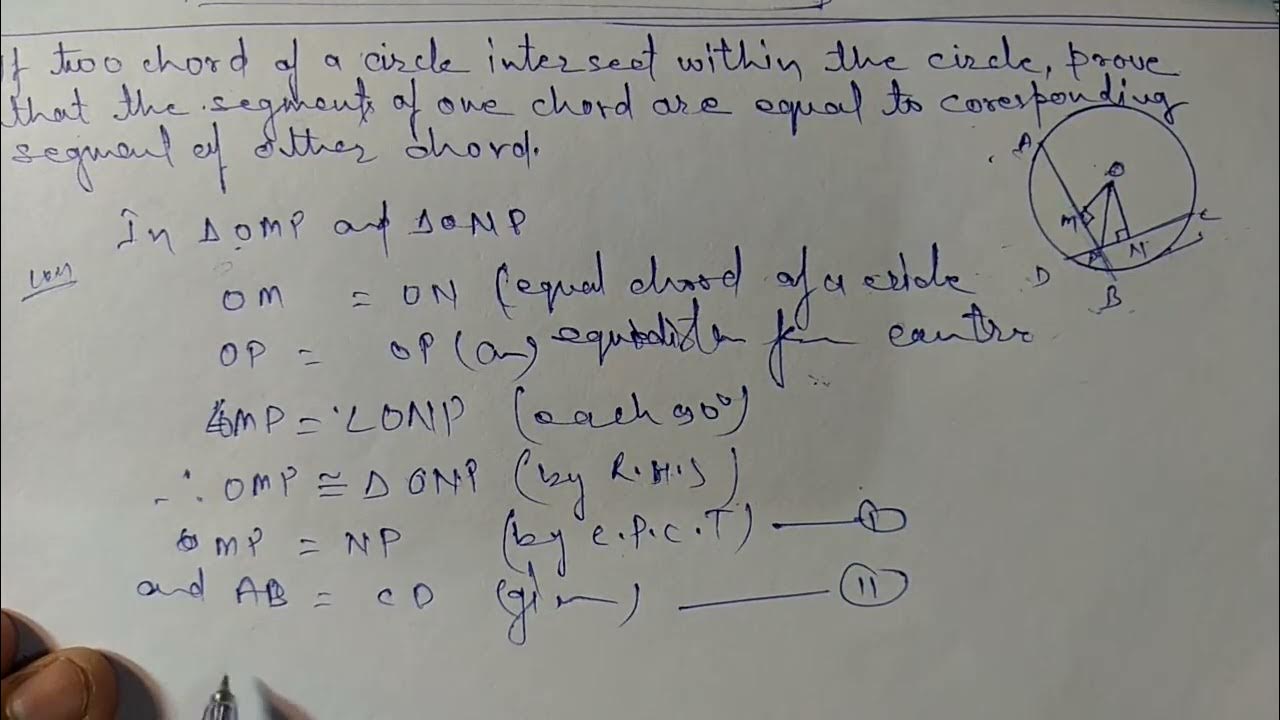 If two chord of a circle intersect within the circle, prove
that the segments of one chord are equal to coresponding
segment of other chord.
A
O
M
C
N
D
P
B
In ΔOMP and ΔONP
OM = ON (equal chord of a circle
OP = OP ( ) equidistan from centre
∠OMP = ∠ONP (each 90°)
∴ OMP ≅ Δ ONP (by R.H.S)
MP = NP (by C.P.C.T) — I
and AB = CD (given) — II